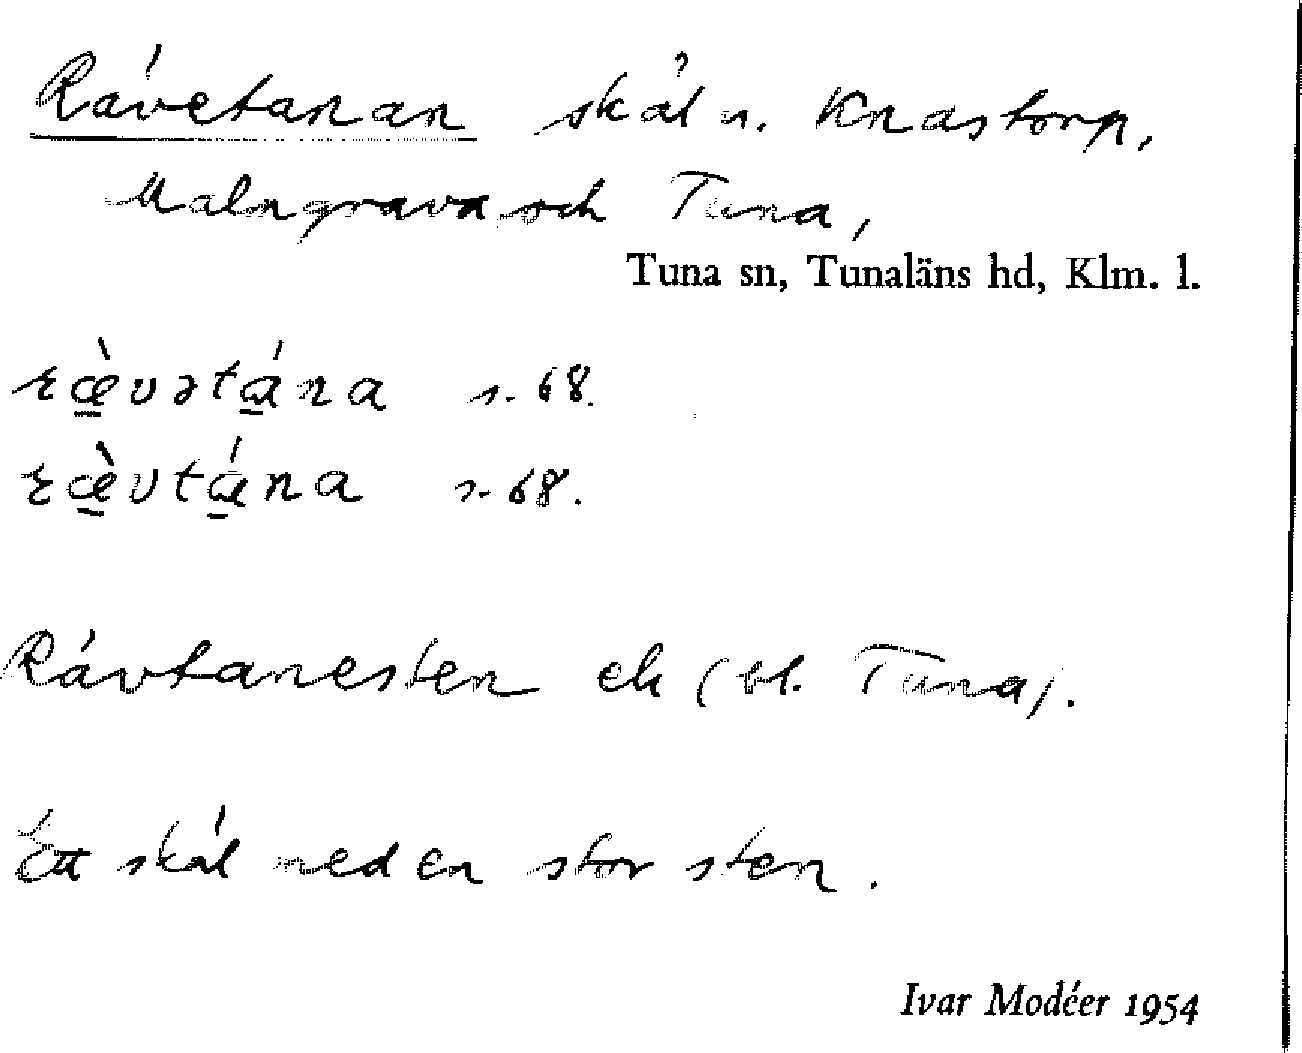 Rävetanan skäl n. Knastorp,
Malngrava och Tuna,
Tuna sn, Tunaläns hd, Klm. l.
ræ̀vətá̱na s. 68.
ræ̀vtá̱na s. 68.
Rävtanesten ek (bl. Tuna).
Ett skäl med en stor sten.
Ivar Modéer 1954